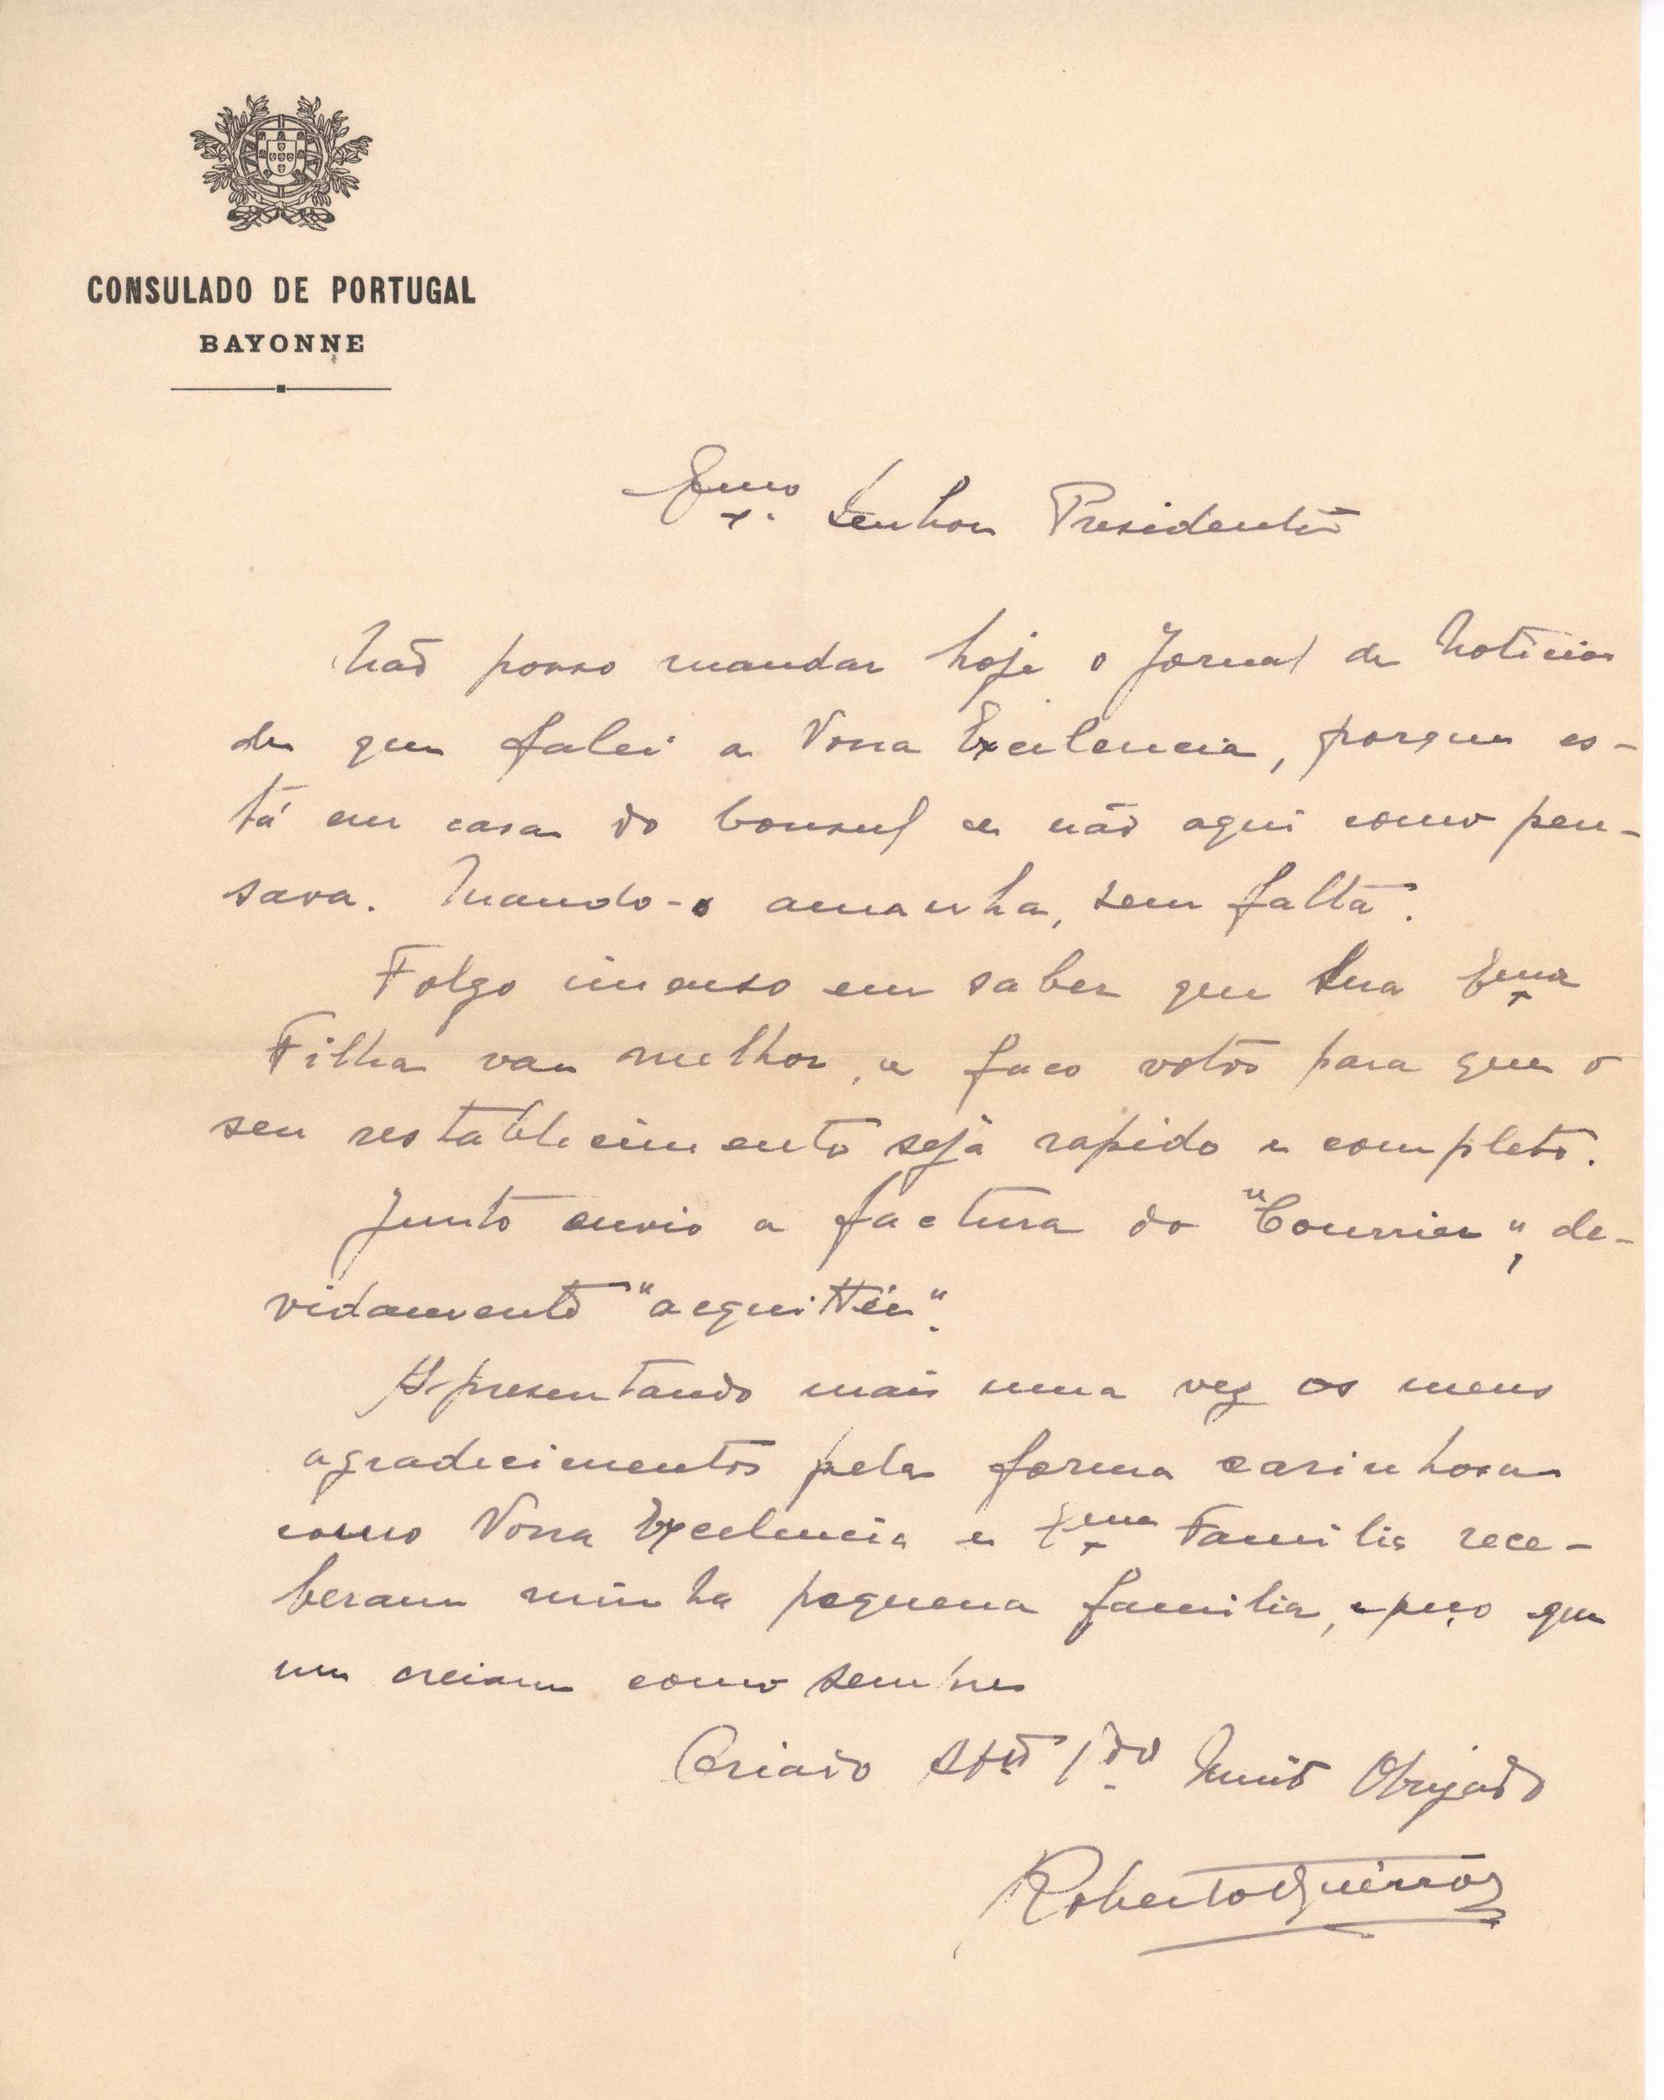 CONSULADO DE PORTUGAL
BAYONNE
Exmo. Senhor Presidente
Não posso mandar hoje o Jornal de Noticias
de que falei a Vossa Excelencia, porque es-
tá em casa do Consul e não aqui como pen-
sava. Mando-o amanha, sem falta.
Folgo imenso em saber que Sua Exma
Filha vae melhor, e faço votos para que o
seu restablecimento seja rapido e completo.
Junto envio a factura do "Courrier", de-
vidamente "acquittée".
Apresentando mais uma vez os meus
agradecimentos pela forma carinhosa
como Vossa Excelencia e Exma Familia rece-
beram minha pequena familia, peço que
me creiam como sempre
Criado Atto Muito Obrigado
Roberto